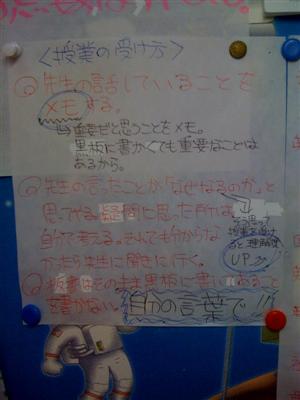 <授業の受け方>
◎先生の話していることを
メモする。
↳重要だと思うことをメモ。
黒板に書かなくても重要なことは
あるから。
◎先生の言ったことが「なぜなるのか」と
思ってみる。疑問に思った所は
自分で考える。それでも分からな
かったら先生に聞きに行く。
そう思って
授業を受け
ると理解度
UP
◎板書はそのまま黒板に書いてあること
を書かない。自分の言葉で!!